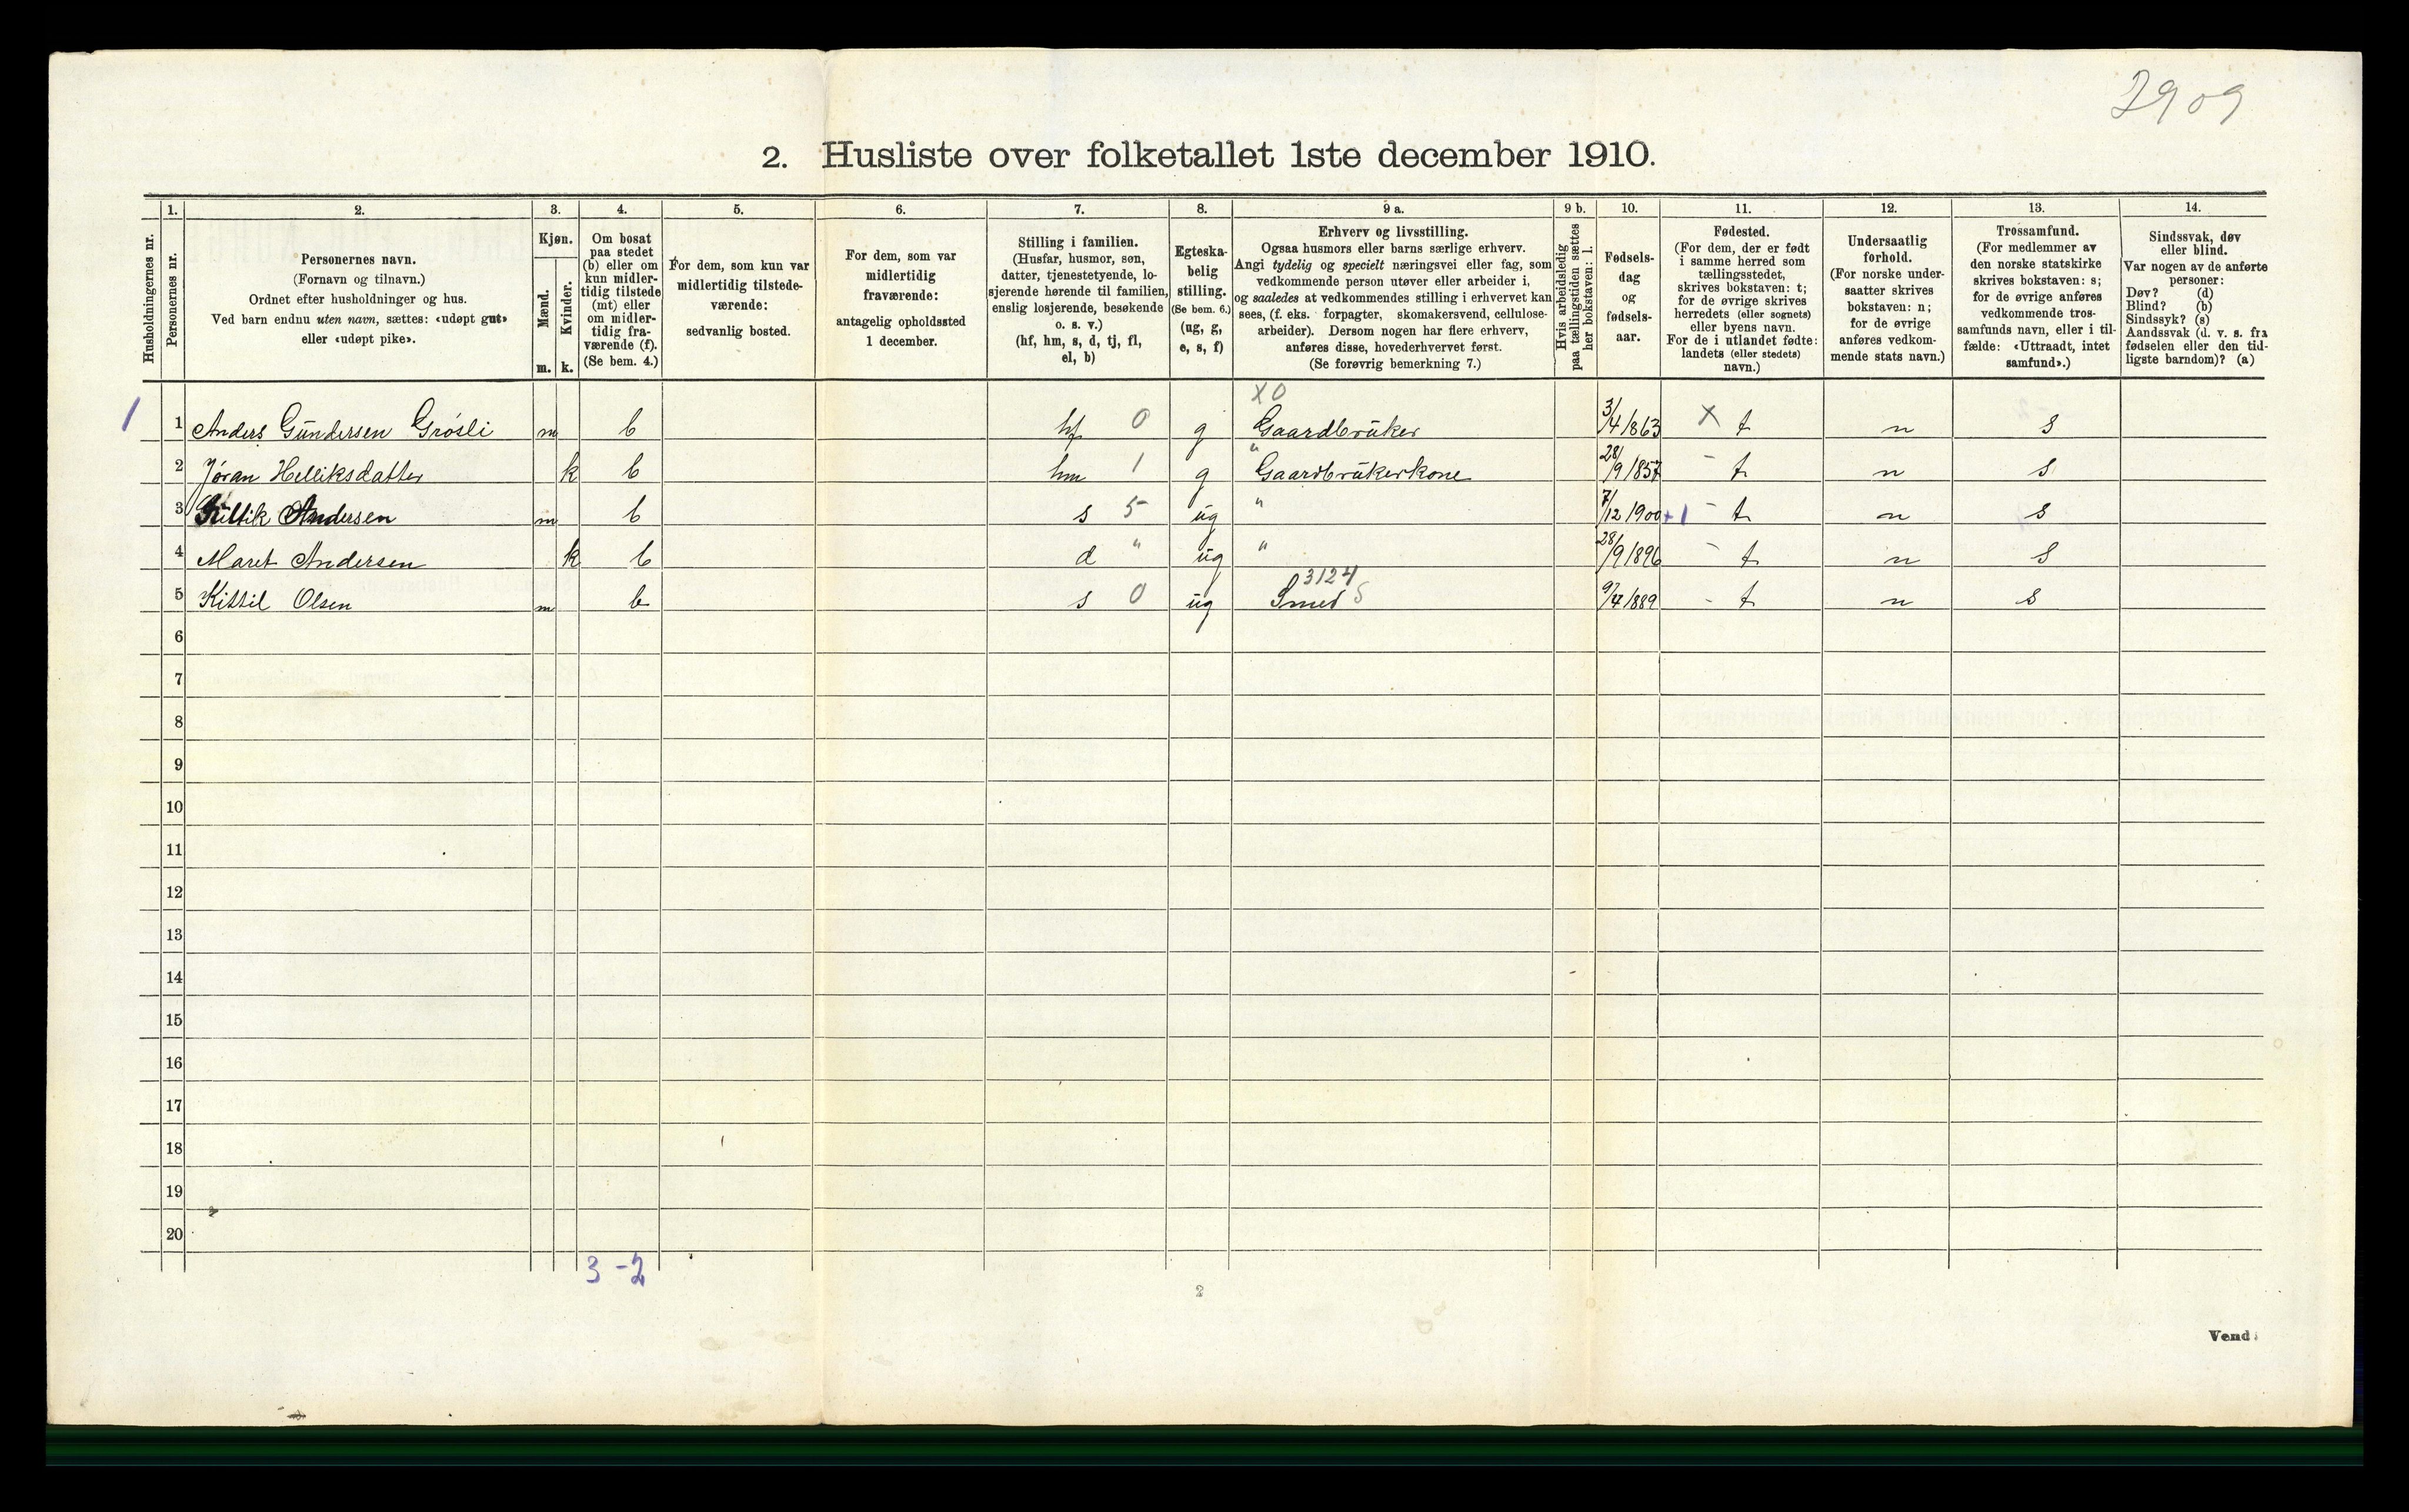 2909
2. Husliste over folketallet 1ste december 1910.
Husholdningernes nr.
1.
Personernes nr.
2.
Personernes navn.
(Fornavn og tilnavn.)
Ordnet efter husholdninger og hus.
Ved barn endnu uten navn, sættes: «udøpt gut»
eller «udøpt pike».
3.
Kjøn.
Mænd.
m.
Kvinder.
k.
4.
Om bosat
paa stedet
(b) eller om
kun midler-
tidig tilstede
(mt) eller
om midler-
tidig fra-
værende (f).
(Se bem. 4.)
5.
For dem, som kun var
midlertidig tilstede-
værende:
sedvanlig bosted.
6.
For dem, som var
midlertidig
fraværende:
antagelig opholdssted
1 december.
7.
Stilling i familien.
(Husfar, husmor, søn,
datter, tjenestetyende, lo-
sjerende hørende til familien,
enslig losjerende, besøkende
o. s. v.)
(hf, hm, s, d, tj, fl,
el, b)
8.
Egteska-
belig
stilling.
(Se bem. 6.)
(ug, g,
e, s, f)
9 a.
Erhverv og livsstilling.
Ogsaa husmors eller barns særlige erhverv.
Angi tydelig og specielt næringsvei eller fag, som
vedkommende person utøver eller arbeider i,
og saaledes at vedkommendes stilling i erhvervet kan
sees, (f. eks. forpagter, skomakersvend, cellulose-
arbeider). Dersom nogen har flere erhverv,
anføres disse, hovederhvervet først.
(Se forøvrig bemerkning 7.)
9 b.
Hvis arbeidsledig
paa tællingstiden sættes
her bokstaven: l.
10.
Fødsels-
dag
og
fødsels-
aar.
11.
Fødested.
(For dem, der er født
i samme herred som
tællingsstedet,
skrives bokstaven: t;
for de øvrige skrives
herredets (eller sognets)
eller byens navn.
For de i utlandet fødte:
landets (eller stedets)
navn.)
12.
Undersaatlig
forhold.
(For norske under-
saatter skrives
bokstaven: n;
for de øvrige
anføres vedkom-
mende stats navn.)
13.
Trossamfund.
(For medlemmer av
den norske statskirke
skrives bokstaven: s;
for de øvrige anføres
vedkommende tros-
samfunds navn, eller i til-
fælde: «Uttraadt, intet
samfund».)
14.
Sindssvak, døv
eller blind.
Var nogen av de anførte
personer:
Døv? (d)
Blind? (b)
Sindssyk? (s)
Aandssvak (d. v. s. fra
fødselen eller den tid-
ligste barndom)? (a)
X0
1 1 Anders Gundersen Grósli m b hf 0 g Gaardbrüker 3/4 1863 X t n s
2 Jóran Helliksdatter k b hm 1 g " Gaardbrükerkone 28/9 1857 - t n s
3 Andersen m b s 5 ug " 7/12 1900 +1 - t n s
4 Maret Andersen k b d " ug " 28/9 1896 - t n s
3124
5 Kittil Olsen m b s 0 ug Smed 5 9/4 1889 - t n s
6
7
8
9
10
11
12
13
14
15
16
17
18
19
20
3 -2
2
Vend!